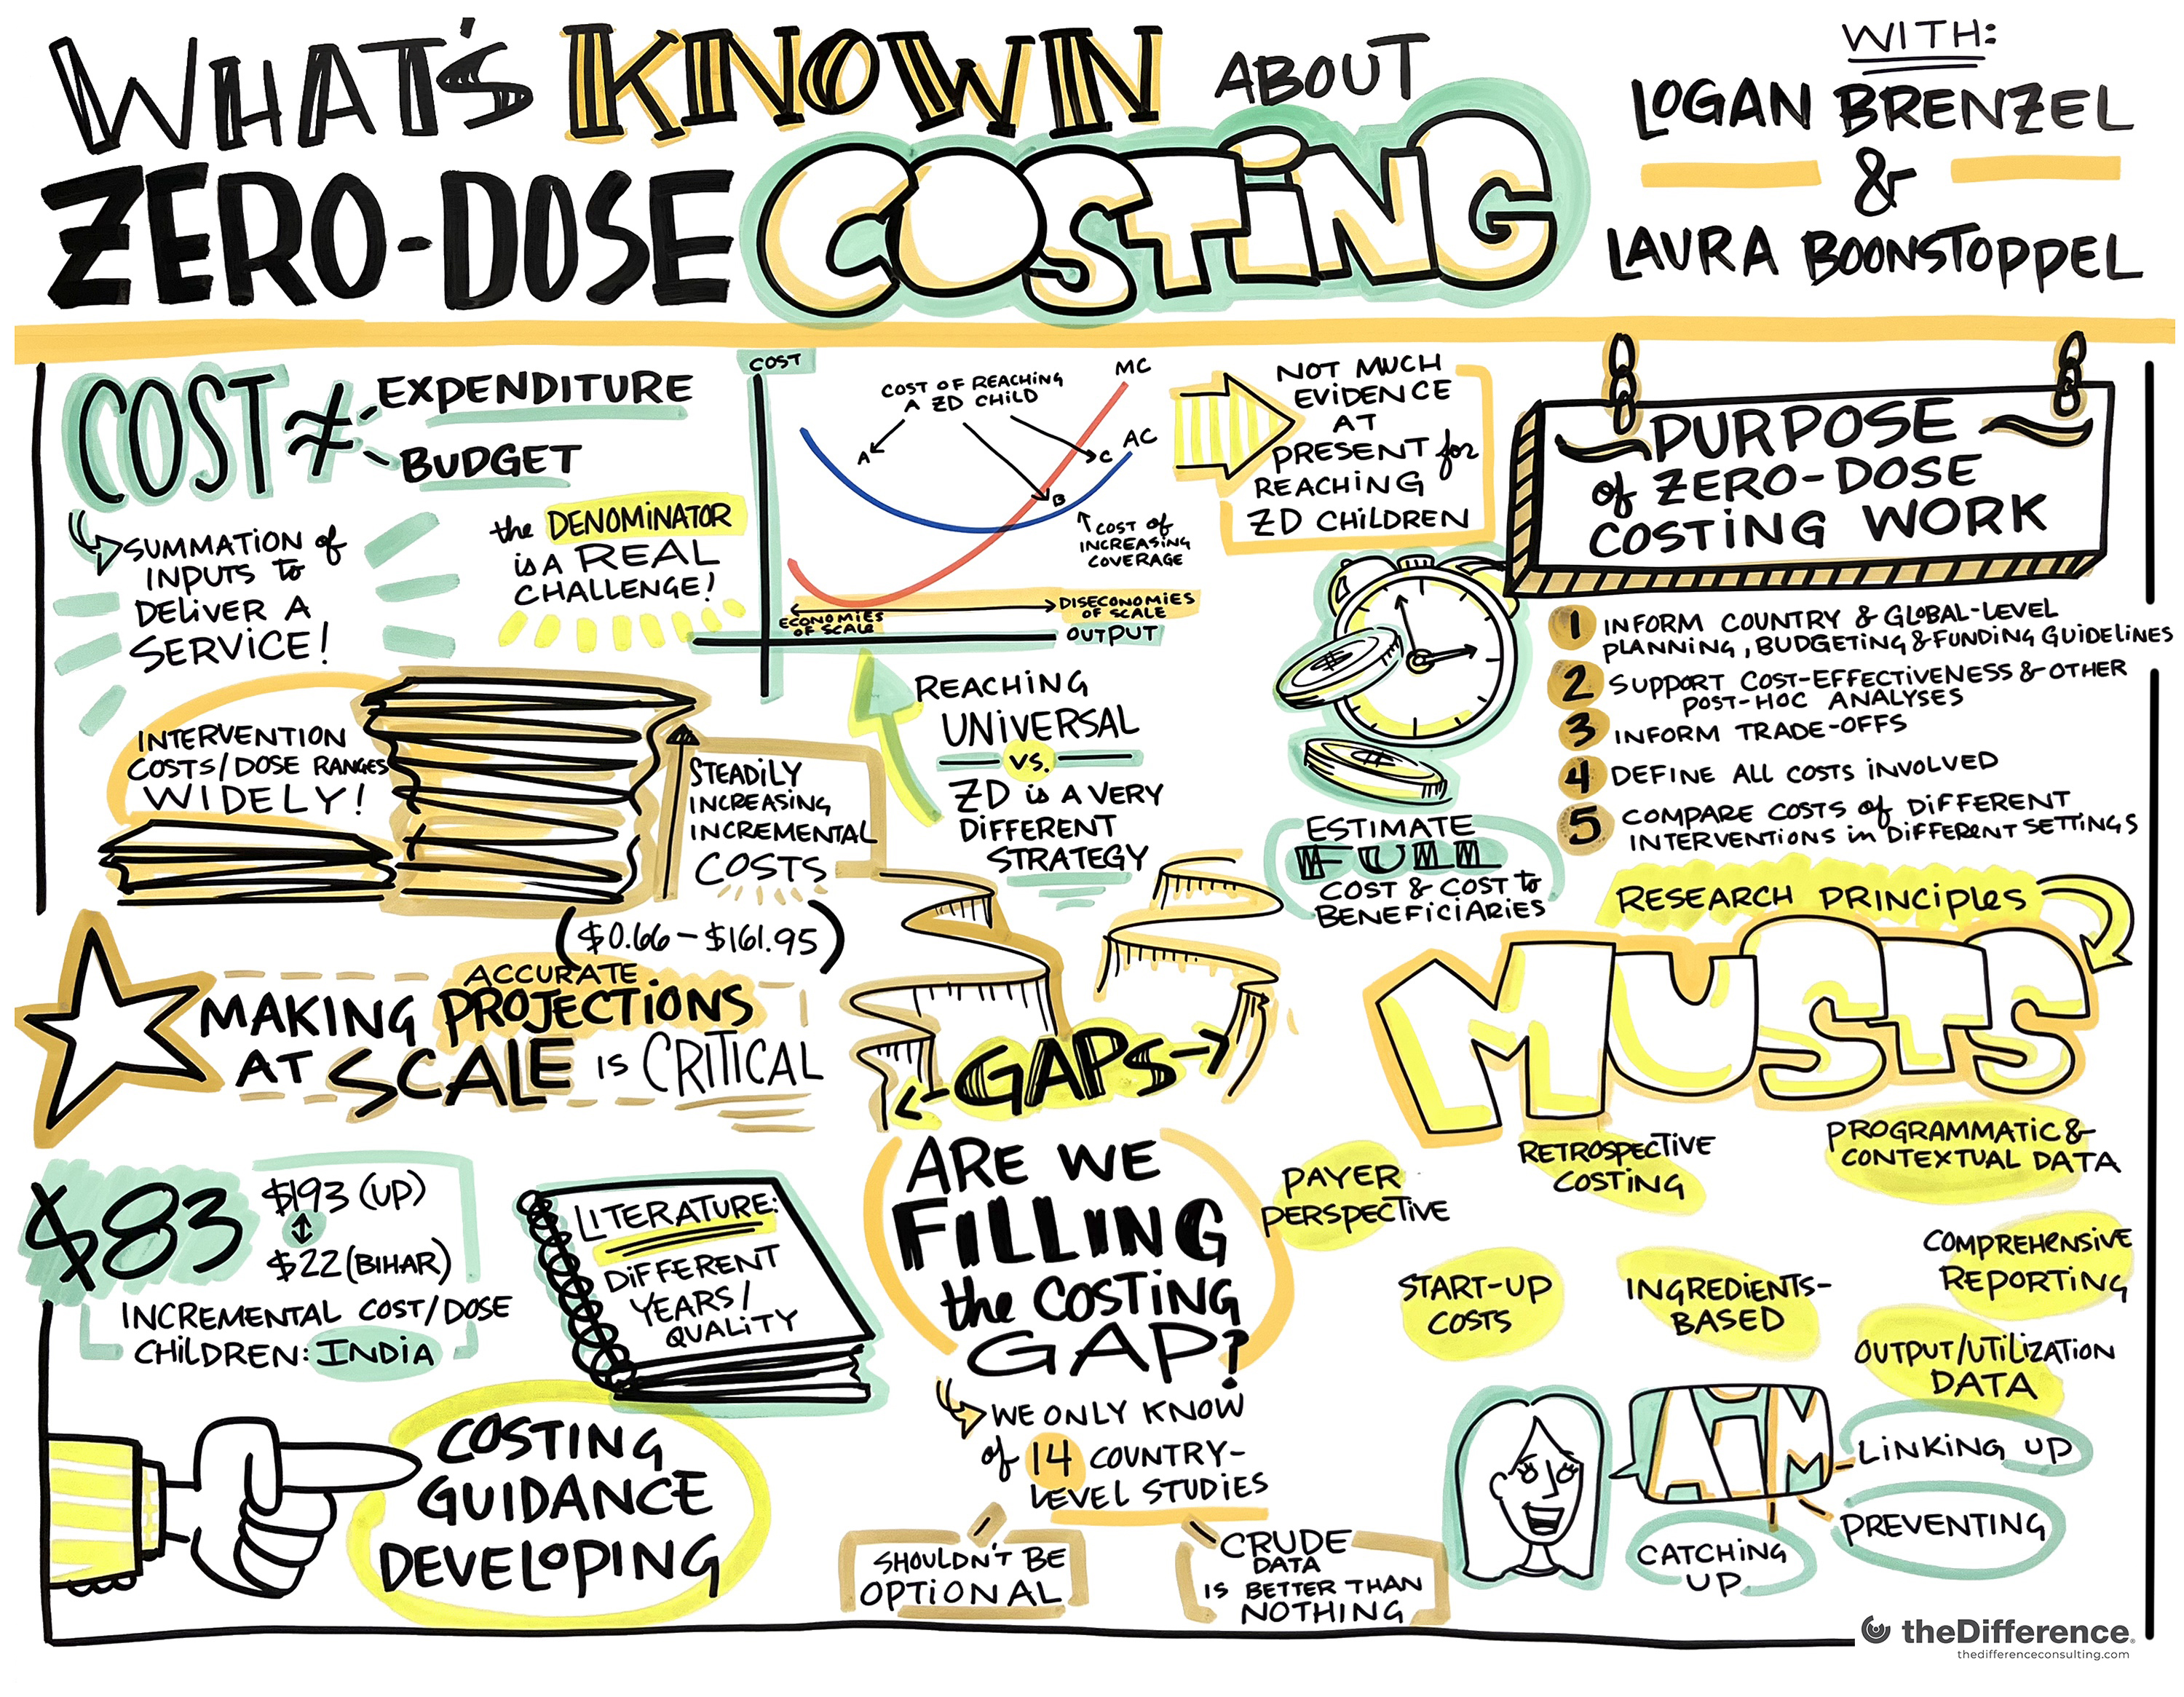 WHAT'S KNOWN ABOUT
ZERO-DOSE COSTING
WITH:
LOGAN BRENZEL
&
LAURA BOONSTOPPEL
COST ≠ EXPENDITURE
BUDGET
SUMMATION of
INPUTS to
DELIVER A
SERVICE!
the DENOMINATOR
is A REAL
CHALLENGE!
COST
COST OF REACHING
A ZD CHILD
MC
AC
A
B
C
COST of
INCREASING
COVERAGE
ECONOMIES
OF SCALE
DISECONOMIES
OF SCALE
OUTPUT
NOT MUCH
EVIDENCE
AT
PRESENT for
REACHING
ZD CHILDREN
REACHING
UNIVERSAL
VS.
ZD is A VERY
DIFFERENT
STRATEGY
INTERVENTION
COSTS/DOSE RANGES
WIDELY!
STEADILY
INCREASING
INCREMENTAL
COSTS
($0.66-$161.95)
ESTIMATE
FULL
COST & COST to
BENEFICIARIES
PURPOSE
of ZERO-DOSE
COSTING WORK
1 INFORM COUNTRY & GLOBAL-LEVEL
PLANNING, BUDGETING & FUNDING GUIDELINES
2 SUPPORT COST-EFFECTIVENESS & OTHER
POST-HOC ANALYSES
3 INFORM TRADE-OFFS
4 DEFINE ALL COSTS INVOLVED
5 COMPARE COSTS of DIFFERENT
INTERVENTIONS in DIFFERENT SETTINGS
MAKING ACCURATE
PROJECTIONS
AT SCALE IS CRITICAL
GAPS
RESEARCH PRINCIPLES
MUSTS
PAYER
PERSPECTIVE
RETROSPECTIVE
COSTING
PROGRAMMATIC &
CONTEXTUAL DATA
START-UP
COSTS
INGREDIENTS-
BASED
COMPREHENSIVE
REPORTING
OUTPUT/UTILIZATION
DATA
$83
$193 (UP)
$22 (BIHAR)
INCREMENTAL COST/DOSE
CHILDREN: INDIA
LITERATURE:
DIFFERENT
YEARS/
QUALITY
ARE WE
FILLING
the COSTING
GAP?
WE ONLY KNOW
of 14 COUNTRY-
LEVEL STUDIES
SHOULDN'T BE
OPTIONAL
CRUDE
DATA
IS BETTER THAN
NOTHING
COSTING
GUIDANCE
DEVELOPING
AIM
LINKING UP
PREVENTING
CATCHING
UP
theDifference®
thedifferenceconsulting.com